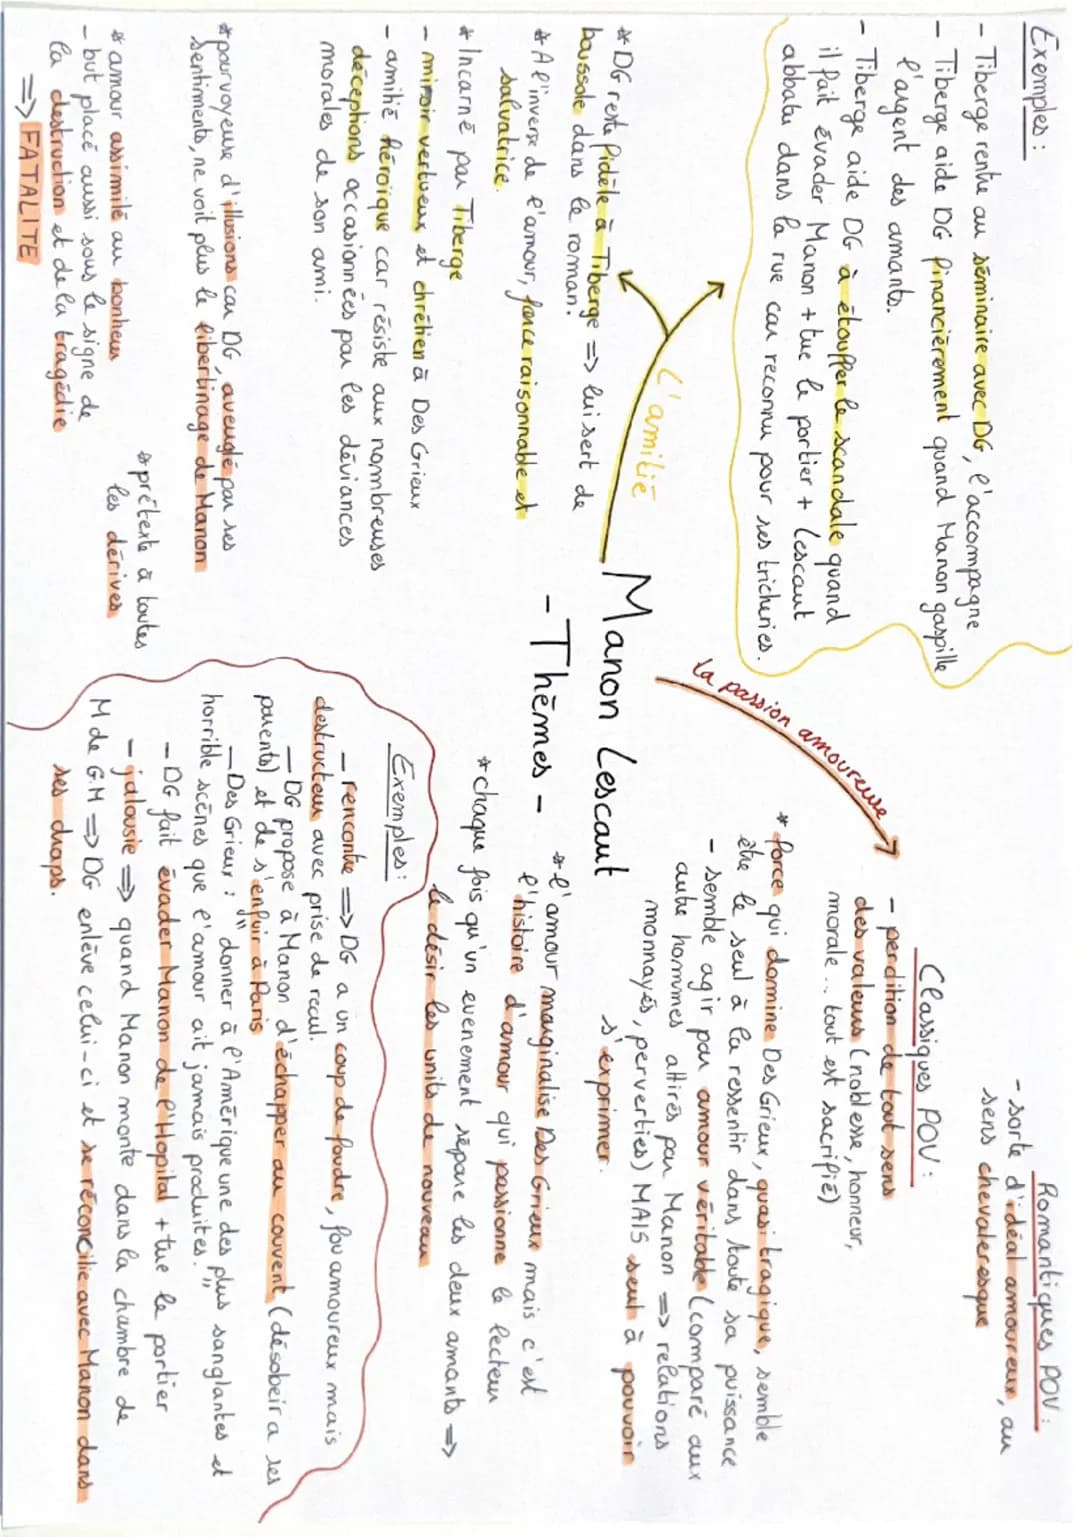 Manon Lescaut
- Thèmes -
L'amitié
* DG reste fidèle à Tiberge => lui sert de
boussole dans le roman.
* A l'inverse de l'amour, force raisonnable et
salvatrice.
* Incarné par Tiberge
- miroir vertueux et chrétien à Des Grieux
- amitié héroïque car résiste aux nombreuses
déceptions occasionnées par les déviances
morales de son ami.
Exemples :
- Tiberge rentre au séminaire avec DG, l'accompagne
- Tiberge aide DG financièrement quand Manon gaspille
l'argent des amants.
- Tiberge aide DG à étouffer le scandale quand
il fait évader Manon + tue le portier + Lescaut
abbatu dans la rue car reconnu pour ses tricheries.
la passion amoureuse
Romantiques POV :
- sorte d'idéal amoureux, au
sens chevaleresque
Classiques POV :
- perdition de tout sens
des valeurs (noblesse, honneur,
morale... tout est sacrifié)
* force qui domine Des Grieux, quasi tragique, semble
être le seul à la ressentir dans toute sa puissance
- semble agir par amour véritable (comparé aux
autre hommes attirés par Manon => relations
monnayés, perverties) MAIS seul à pouvoir
s'exprimer.
* l'amour marginalise Des Grieux mais c'est
l'histoire d'amour qui passionne le lecteur
* chaque fois qu'un evenement sépare les deux amants =>
le désir les units de nouveau
Exemples :
- rencontre => DG a un coup de foudre, fou amoureux mais
destructeur avec prise de recul.
- DG propose à Manon d'échapper au couvent (désobeir a ses
parents) et de s'enfuir à Paris
- Des Grieux : " donner à l'Amérique une des plus sanglantes et
horrible scènes que l'amour ait jamais produites. "
- DG fait évader Manon de l'Hopital + tue le portier
- jalousie => quand Manon monte dans la chambre de
M de G.M => DG enlève celui-ci et se réconcilie avec Manon dans
ses draps.
* pourvoyeuse d'illusions car DG, aveuglé par ses
sentiments, ne voit plus le libertinage de Manon
* prétexte à toutes
les dérives
* amour assimilé au bonheur
- but placé aussi sous le signe de
la destruction et de la tragédie
=> FATALITE